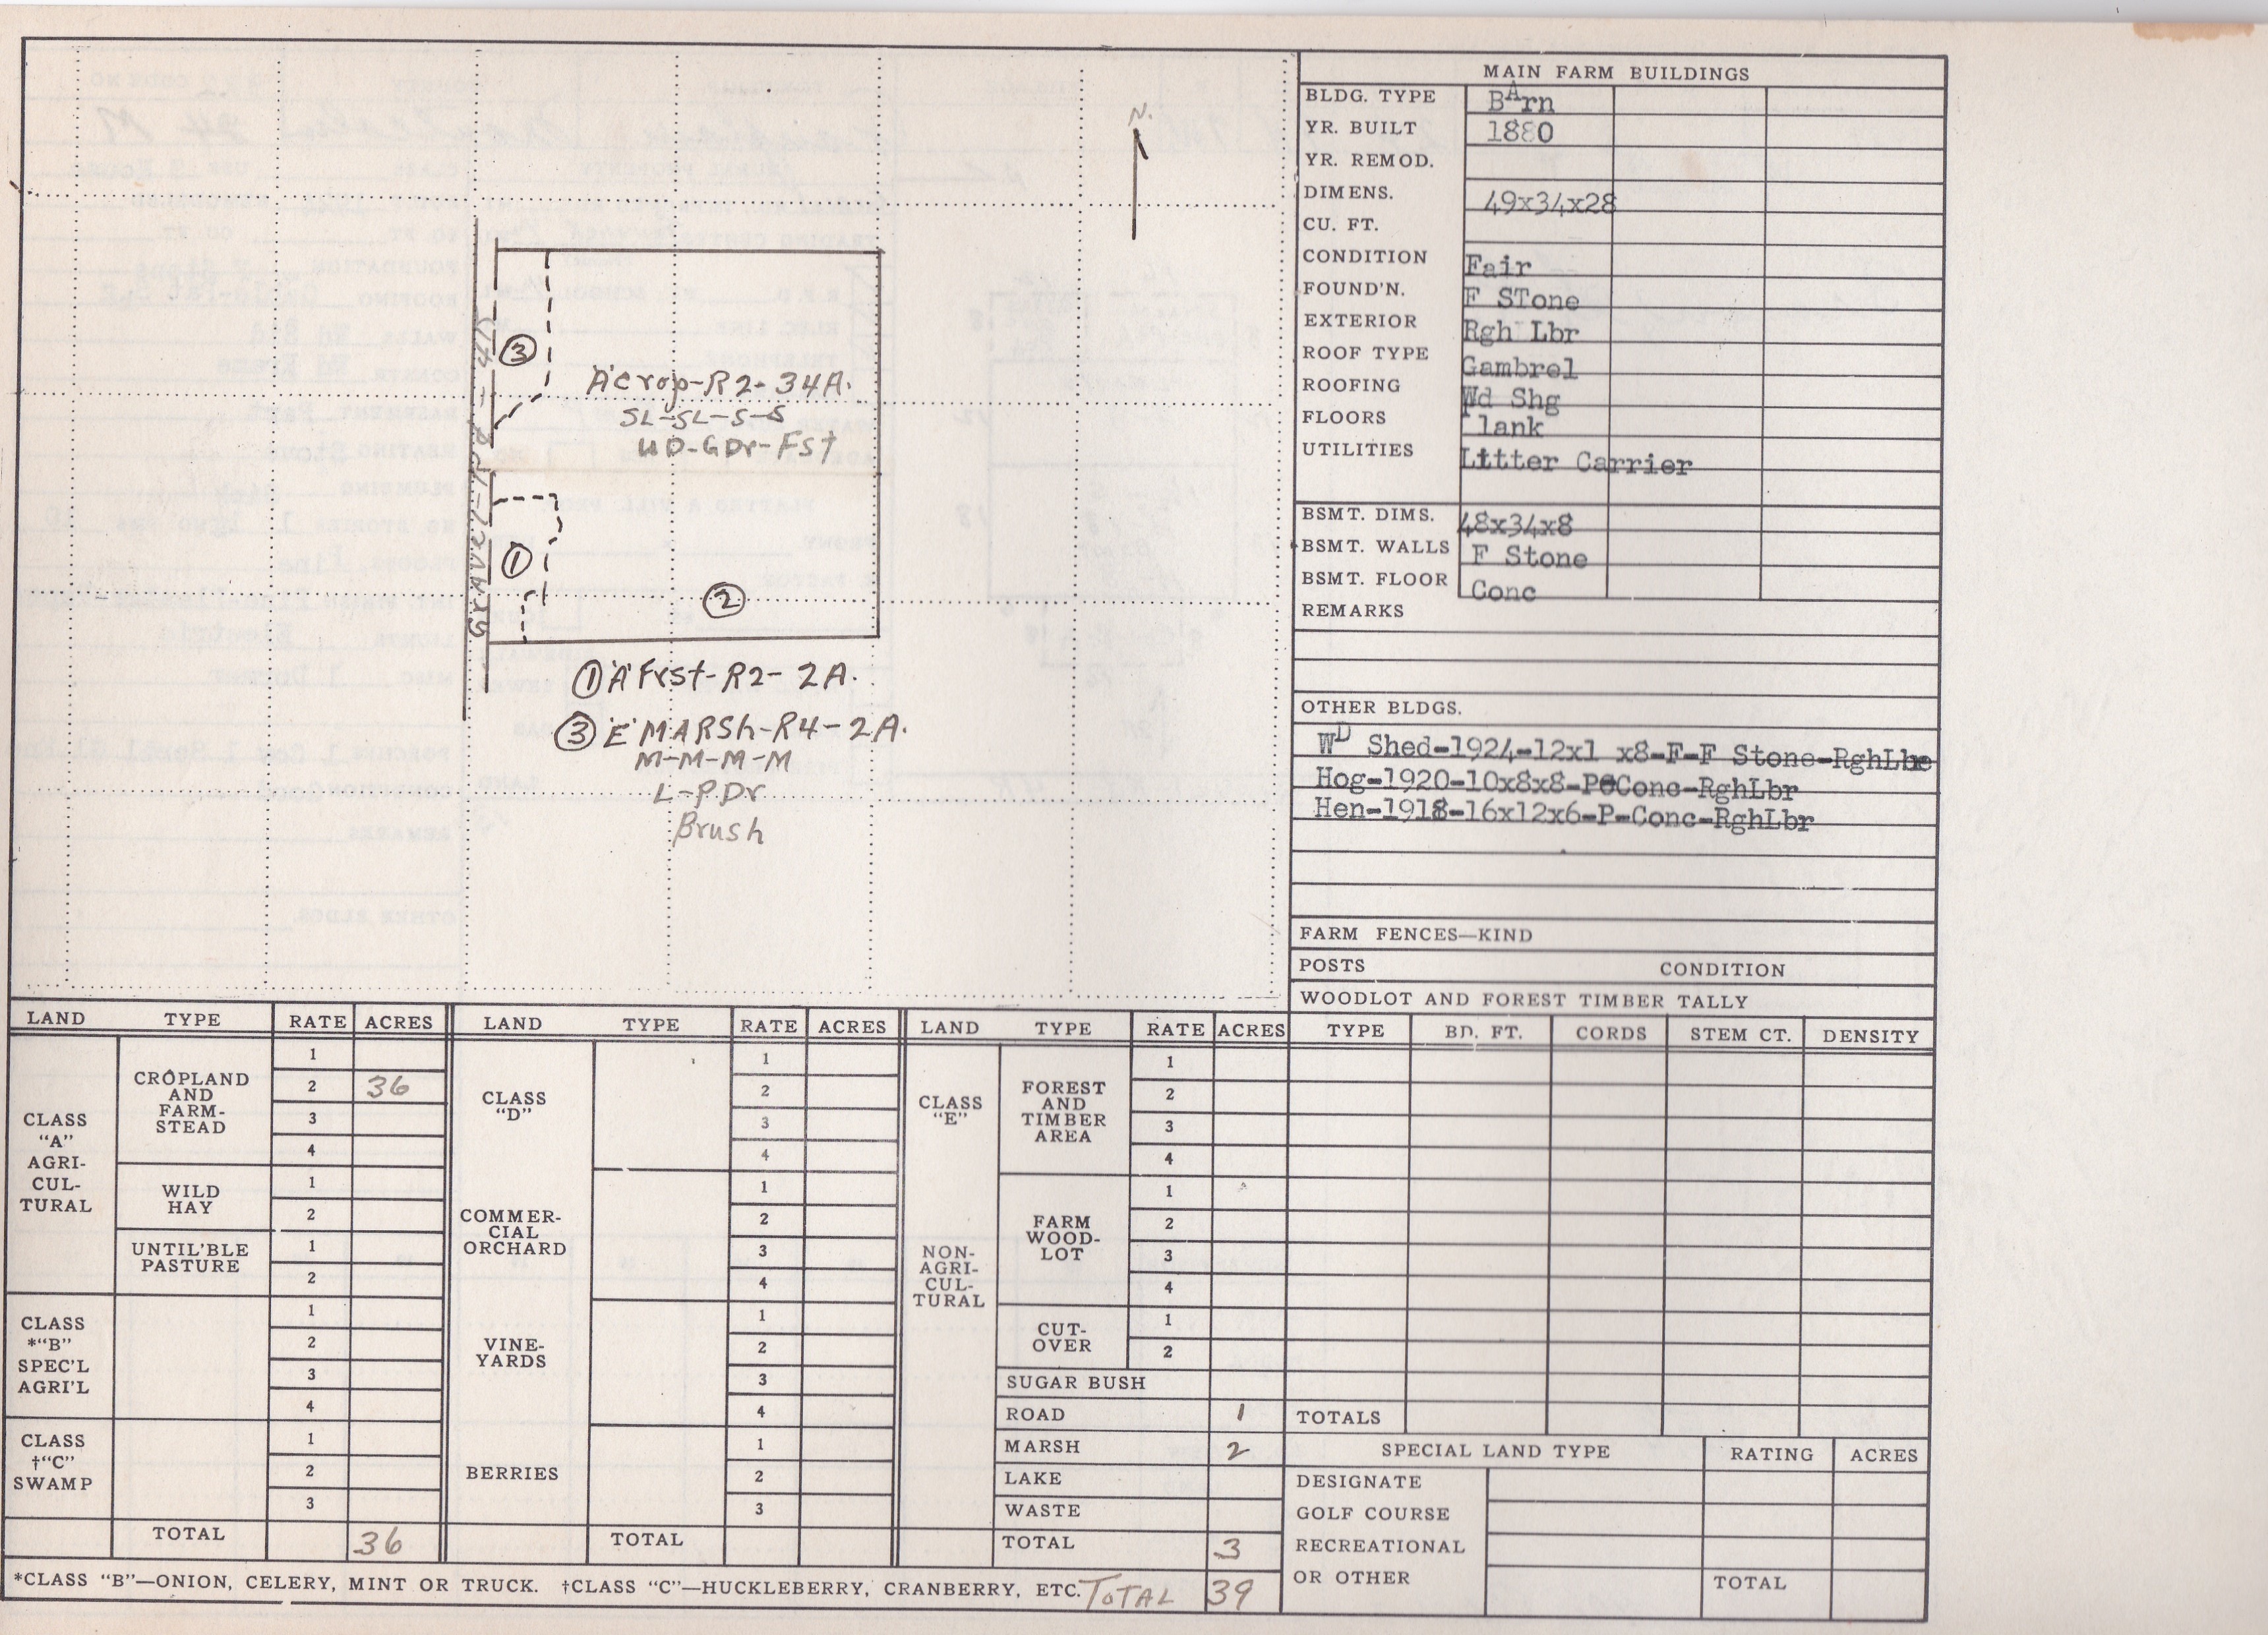 N.
GrAVel-Rd-4R
③
'A'Crop-R2-34A.
SL-SL-S-S
UD-GDr-Fst
①
②
① 'A' Frst-R2-2A.
③ 'E' MARSh-R4-2A.
M-M-M-M
L-PDr
Brush
MAIN FARM BUILDINGS
BLDG. TYPE BArn
YR. BUILT 1880
YR. REMOD.
DIMENS. 49x34x28
CU. FT.
CONDITION Fair
FOUND'N. F STone
EXTERIOR Rgh Lbr
ROOF TYPE Gambrel
ROOFING Wd Shg
FLOORS Plank
UTILITIES Litter Carrier
BSMT. DIMS. 48x34x8
BSMT. WALLS F Stone
BSMT. FLOOR Conc
REMARKS
OTHER BLDGS.
WD Shed-1924-12x1 x8-F-F Stone-RghLbr
Hog-1920-10x8x8-P-Conc-RghLbr
Hen-1918-16x12x6-P-Conc-RghLbr
FARM FENCES—KIND
POSTS CONDITION
WOODLOT AND FOREST TIMBER TALLY
TYPE BD. FT. CORDS STEM CT. DENSITY
TOTALS
SPECIAL LAND TYPE RATING ACRES
DESIGNATE
GOLF COURSE
RECREATIONAL
OR OTHER TOTAL
LAND TYPE RATE ACRES
CLASS
"A"
AGRI-
CUL-
TURAL
CROPLAND
AND
FARM-
STEAD
1
2 36
3
4
WILD
HAY
1
2
UNTIL'BLE
PASTURE
1
2
CLASS
*"B"
SPEC'L
AGRI'L
1
2
3
4
CLASS
†"C"
SWAMP
1
2
3
TOTAL 36
LAND TYPE RATE ACRES
CLASS
"D"
1
2
3
4
COMMER-
CIAL
ORCHARD
1
2
3
4
VINE-
YARDS
1
2
3
4
BERRIES
1
2
3
TOTAL
LAND TYPE RATE ACRES
CLASS
"E"
NON-
AGRI-
CUL-
TURAL
FOREST
AND
TIMBER
AREA
1
2
3
4
FARM
WOOD-
LOT
1
2
3
4
CUT-
OVER
1
2
SUGAR BUSH
ROAD 1
MARSH 2
LAKE
WASTE
TOTAL 3
*CLASS "B"—ONION, CELERY, MINT OR TRUCK. †CLASS "C"—HUCKLEBERRY, CRANBERRY, ETC. TOTAL 39